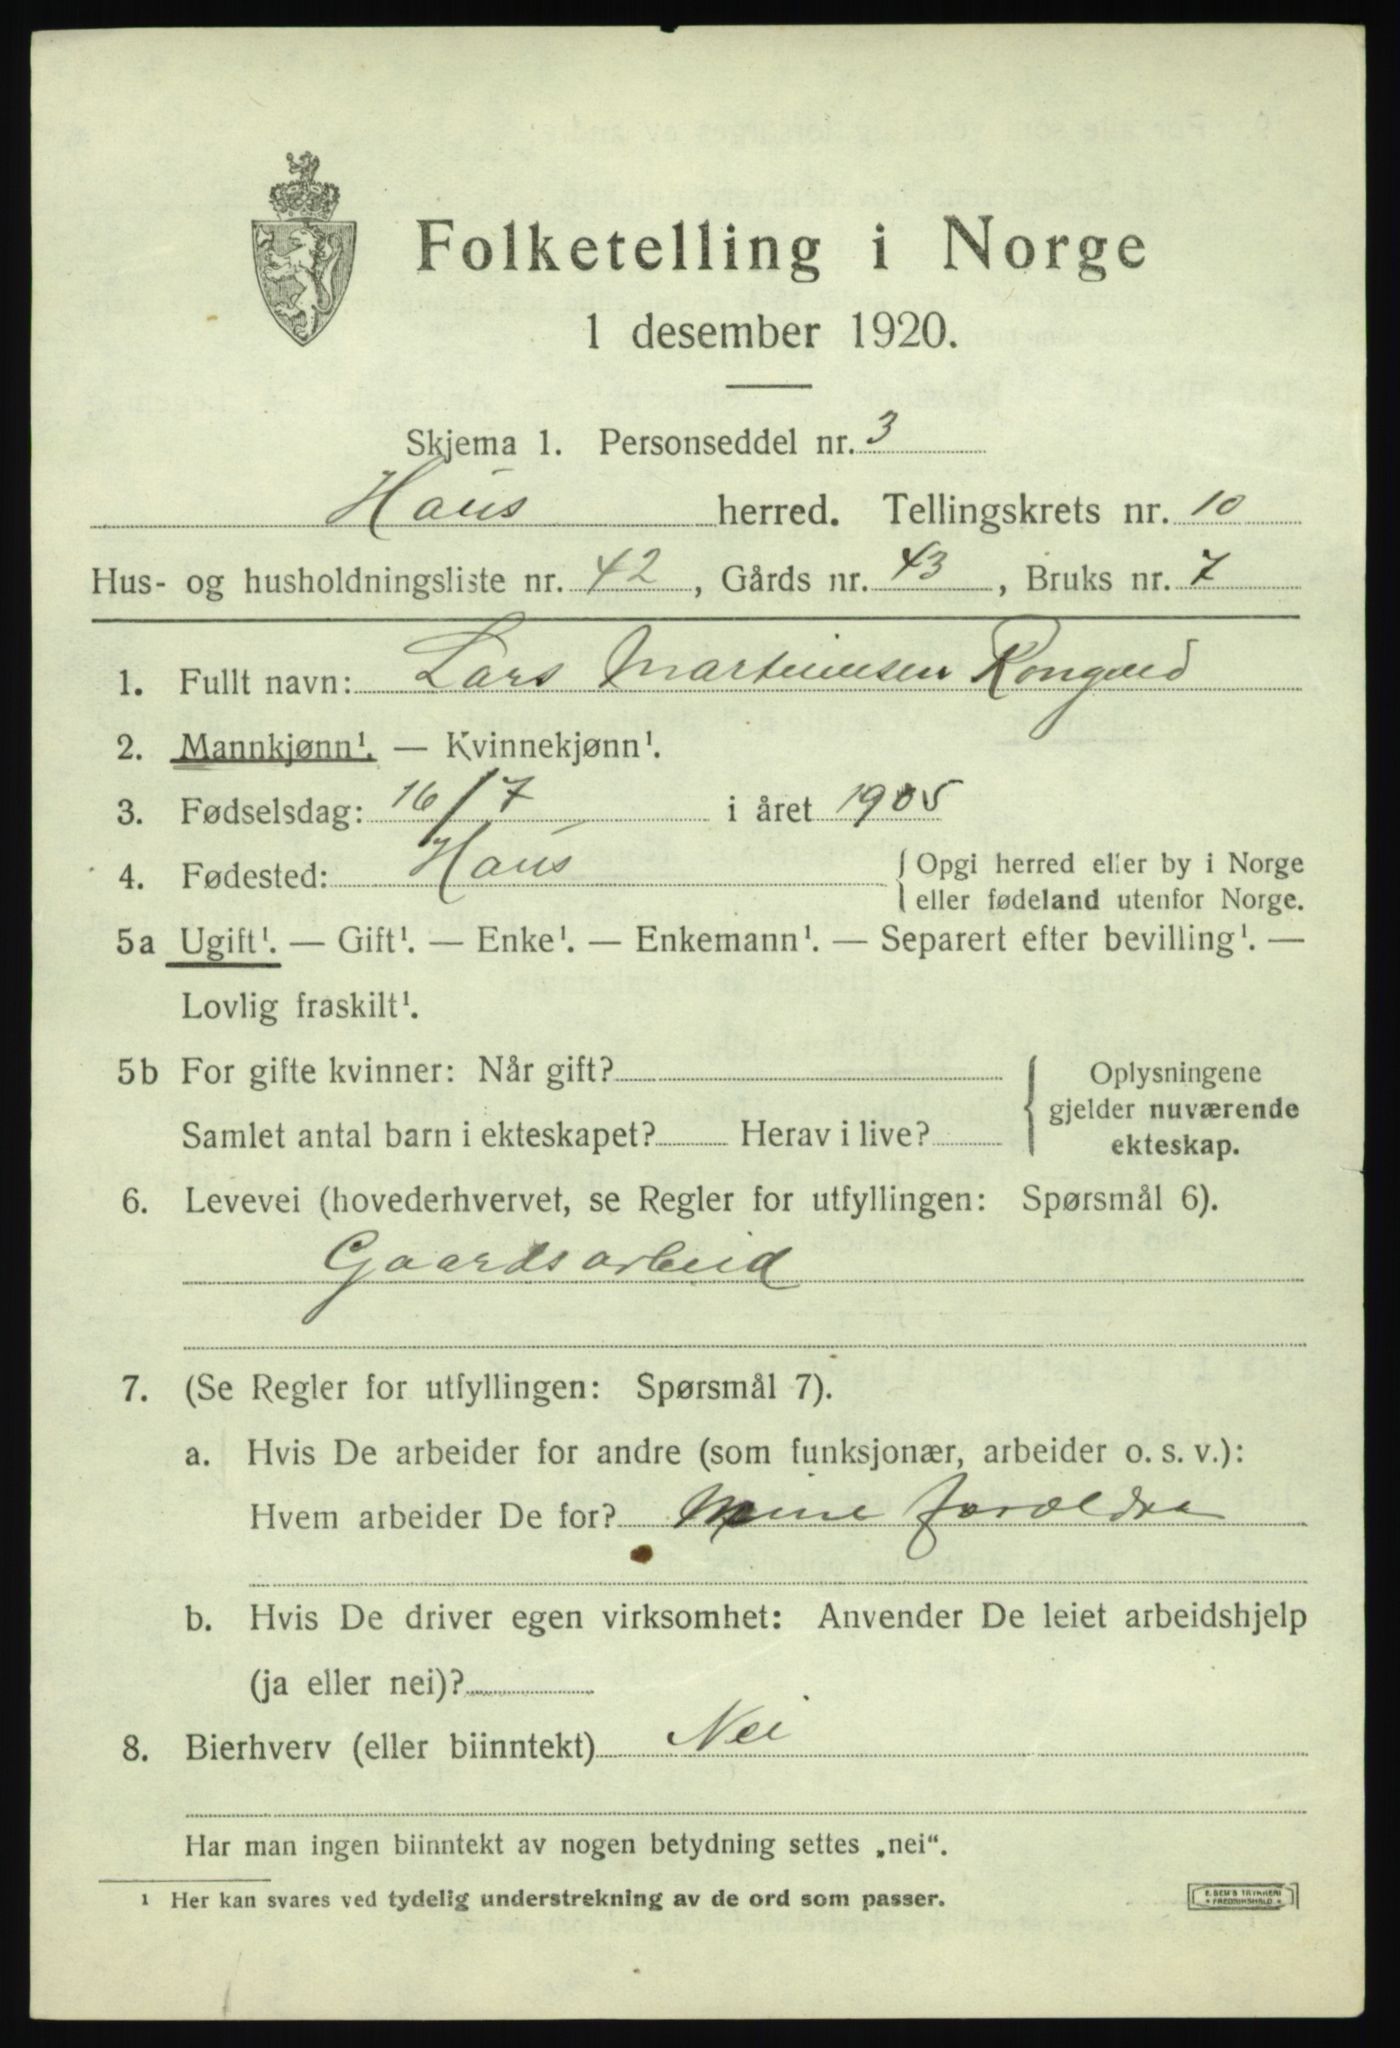 Folketelling i Norge
1 desember 1920.
Skjema 1. Personseddel nr. 3
Haus herred. Tellingskrets nr. 10
Hus- og husholdningsliste nr. 42, Gårds nr. 43, Bruks nr. 7
1. Fullt navn: Lars Martinusen
2. Mannkjønn¹. — Kvinnekjønn¹.
3. Fødselsdag: 16/7 i året 1905
4. Fødested: Haus { Opgi herred eller by i Norge
eller fødeland utenfor Norge.
5a Ugift¹. — Gift¹. — Enke¹. — Enkemann¹. — Separert efter bevilling¹. —
Lovlig fraskilt¹.
5b For gifte kvinner: Når gift? { Oplysningene
gjelder nuværende
Samlet antal barn i ekteskapet? Herav i live?
ekteskap.
6. Levevei (hovederhvervet, se Regler for utfyllingen: Spørsmål 6).
Gaardsarbeid
7. (Se Regler for utfyllingen: Spørsmål 7).
a. Hvis De arbeider for andre (som funksjonær, arbeider o. s. v.):
Hvem arbeider De for? Mine foræeldre
b. Hvis De driver egen virksomhet: Anvender De leiet arbeidshjelp
(ja eller nei)?
8. Bierhverv (eller biinntekt) Nei
Har man ingen biinntekt av nogen betydning settes „nei".
¹ Her kan svares ved tydelig understrekning av de ord som passer.
E. SEM'S TRYKKERI
FREDRIKSHALD